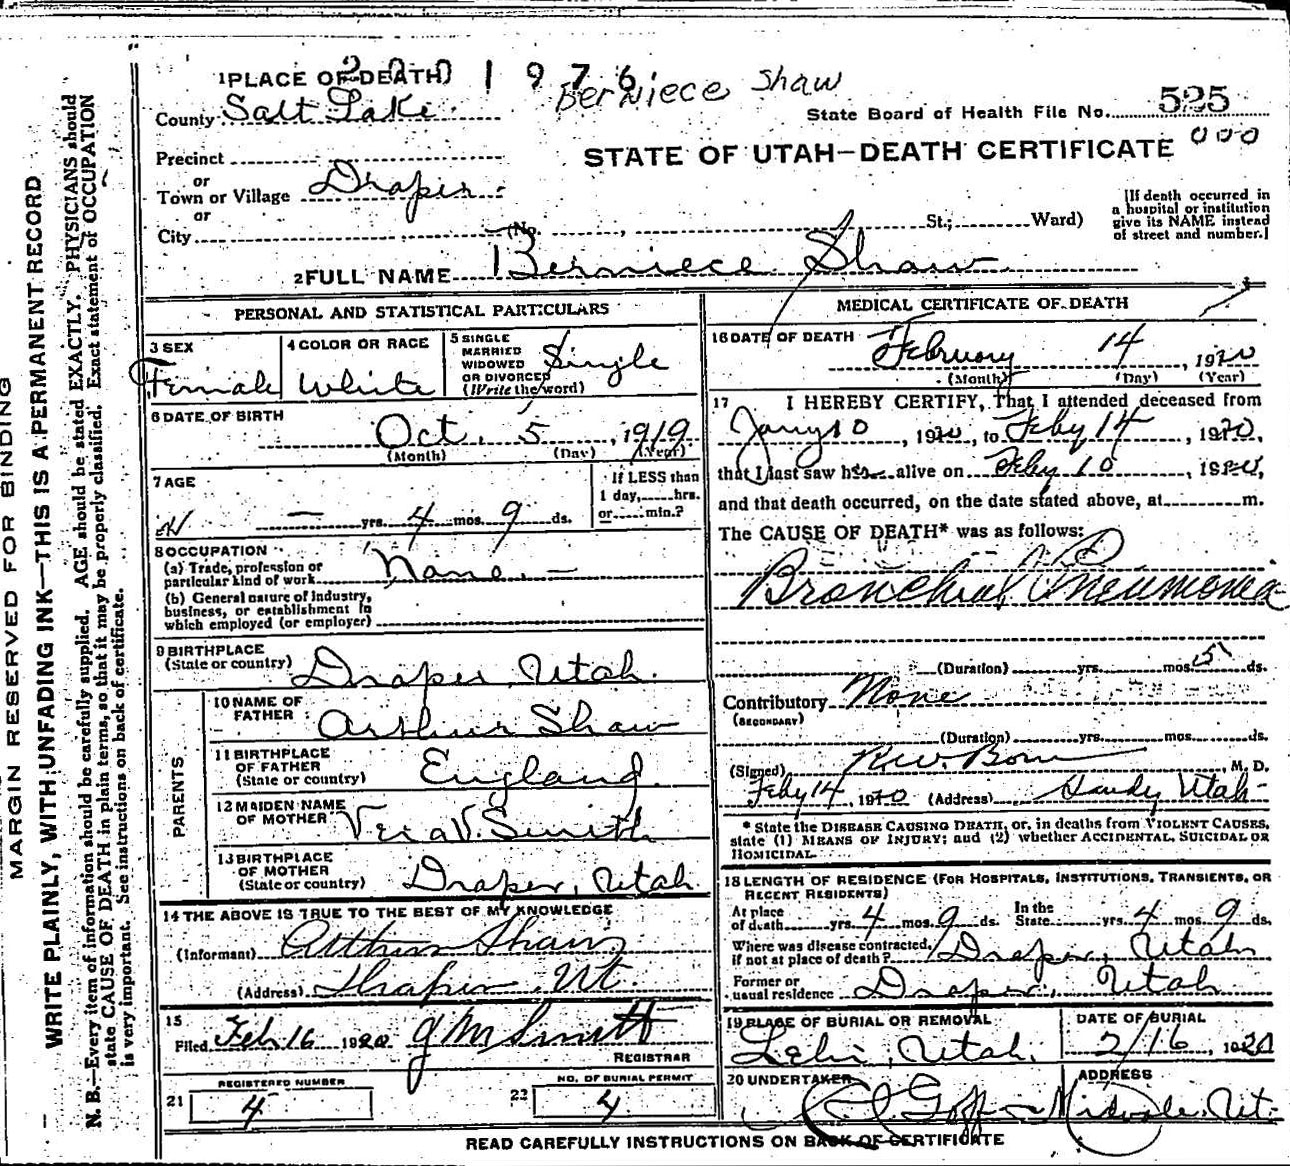 MARGIN RESERVED FOR BINDING
WRITE PLAINLY, WITH UNFADING INK—THIS IS A PERMANENT RECORD
N. B.—Every item of information should be carefully supplied. AGE should be stated EXACTLY. PHYSICIANS should
state CAUSE OF DEATH in plain terms, so that it may be properly classified. Exact statement of OCCUPATION
is very important. See instructions on back of certificate.
1 PLACE OF DEATH
1976
Berniece Shaw
County Salt Lake
State Board of Health File No. 525
000
STATE OF UTAH—DEATH CERTIFICATE
Precinct
or
Town or Village Draper
or
City
(No. , St.; Ward)
[If death occurred in
a hospital or institution
give its NAME instead
of street and number.]
2 FULL NAME Berniece Shaw
PERSONAL AND STATISTICAL PARTICULARS
3 SEX
Female
4 COLOR OR RACE
White
5 SINGLE
MARRIED
WIDOWED
OR DIVORCED
(Write the word)
Single
6 DATE OF BIRTH
Oct. 5, 1919
(Month) (Day) (Year)
7 AGE
— yrs. 4 mos. 9 ds.
If LESS than
1 day, hrs.
or min.?
8 OCCUPATION
(a) Trade, profession or
particular kind of work None. —
(b) General nature of industry,
business, or establishment in
which employed (or employer)
9 BIRTHPLACE
(State or country) Draper, Utah.
PARENTS
10 NAME OF
FATHER Arthur Shaw
11 BIRTHPLACE
OF FATHER
(State or country) England.
12 MAIDEN NAME
OF MOTHER Vera V. Smith
13 BIRTHPLACE
OF MOTHER
(State or country) Draper, Utah
14 THE ABOVE IS TRUE TO THE BEST OF MY KNOWLEDGE
(Informant) Arthur Shaw
(Address) Draper Ut.
15
Filed Feb 16 1920 J M Smith
REGISTRAR
REGISTERED NUMBER
21 4
NO. OF BURIAL PERMIT
22 4
MEDICAL CERTIFICATE OF DEATH
16 DATE OF DEATH
February 14, 1920
(Month) (Day) (Year)
17 I HEREBY CERTIFY, That I attended deceased from
Jany 10, 1920, to Feby 14, 1920,
that I last saw h alive on Feby 10, 1920,
and that death occurred, on the date stated above, at m.
The CAUSE OF DEATH* was as follows:
Bronchial Pneumonia
(Duration) yrs. mos. 5 ds.
Contributory None
(SECONDARY)
(Duration) yrs. mos. ds.
(Signed) , M. D.
Feby 14, 1920 (Address) Sandy Utah
* State the DISEASE CAUSING DEATH, or, in deaths from VIOLENT CAUSES,
state (1) MEANS OF INJURY; and (2) whether ACCIDENTAL, SUICIDAL OR
HOMICIDAL.
18 LENGTH OF RESIDENCE (FOR HOSPITALS, INSTITUTIONS, TRANSIENTS, OR
RECENT RESIDENTS)
At place of death yrs. 4 mos. 9 ds. In the State yrs. 4 mos. 9 ds.
Where was disease contracted,
if not at place of death? Draper, Utah
Former or
usual residence Draper, Utah
19 PLACE OF BURIAL OR REMOVAL
Lehi, Utah.
DATE OF BURIAL
2/16, 1920
20 UNDERTAKER
Goff
ADDRESS
Midvale, Ut.
READ CAREFULLY INSTRUCTIONS ON BACK OF CERTIFICATE